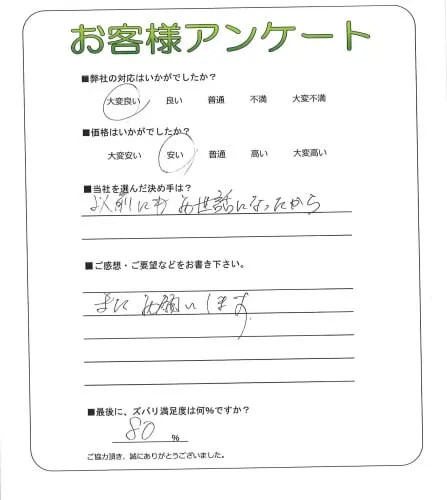 お客様アンケート
■弊社の対応はいかがでしたか？
大変良い 良い 普通 不満 大変不満
■価格はいかがでしたか？
大変安い 安い 普通 高い 大変高い
■当社を選んだ決め手は？
以前にもお世話になったから
■ご感想・ご要望などをお書き下さい。
またお願いします
■最後に、ズバリ満足度は何％ですか？
80 ％
ご協力頂き、誠にありがとうございました。